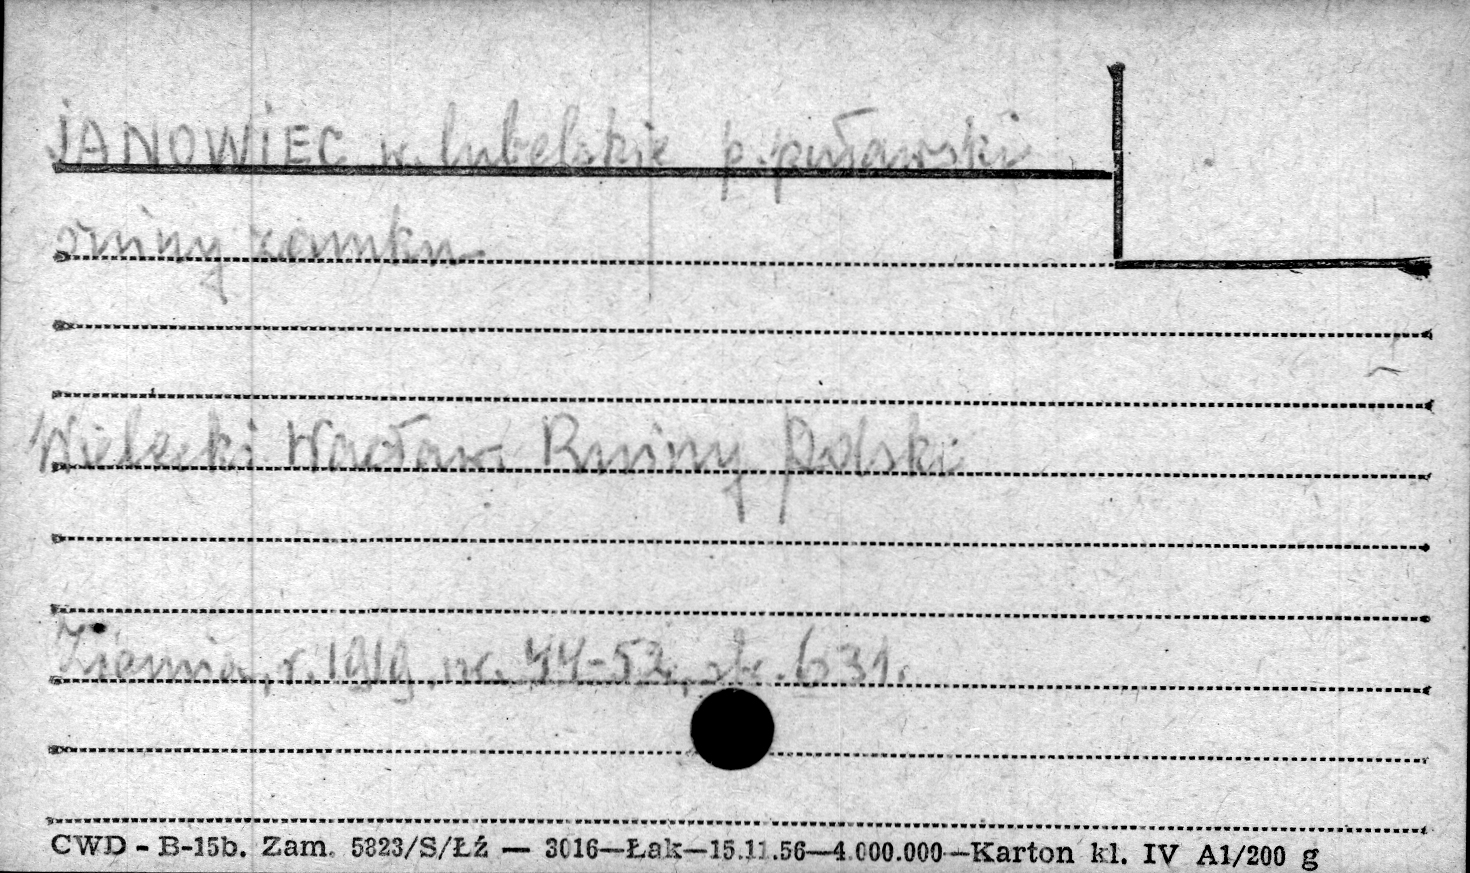 JANOWIEC w. lubelskie p. puławski
ruiny zamku
Wielecki Wacław Ruiny Polski
Ziemia, r. 1919, nr. 44-52, str. 631.
CWD - B-15b. Zam. 5823/S/Łź — 3016—Łak—15.11.56—4.000.000—Karton kl. IV A1/200 g